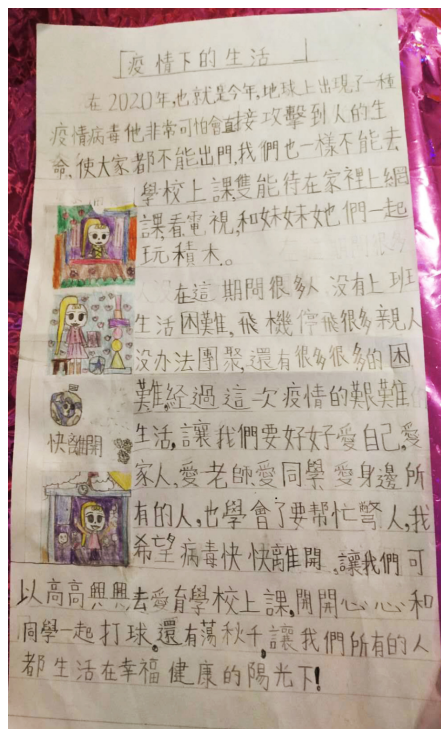 「疫情下的生活」
在2020年,也就是今年,地球上出現了一種
疫情病毒他非常可怕會直接攻擊到人的生
命,使大家都不能出門,我們也一樣不能去
學校上課,雙能待在家裡上網
課,看電視,和妹妹她們一起
玩積木。
在這期間很多人沒有上班
生活困難,飛機停飛很多親人
沒办法團聚,還有很多很多的困
難,經過這一次疫情的艱難
生活,讓我們要好好愛自己,愛
快離開
家人,愛老師愛同學愛身邊所
有的人,也學會了要帮忙警人,我
希望病毒快快離開,讓我們可
以高高興興去愛育學校上課,開開心心和
同學一起打球,還有蕩秋千,讓我們所有的人
都生活在幸福健康的陽光下!